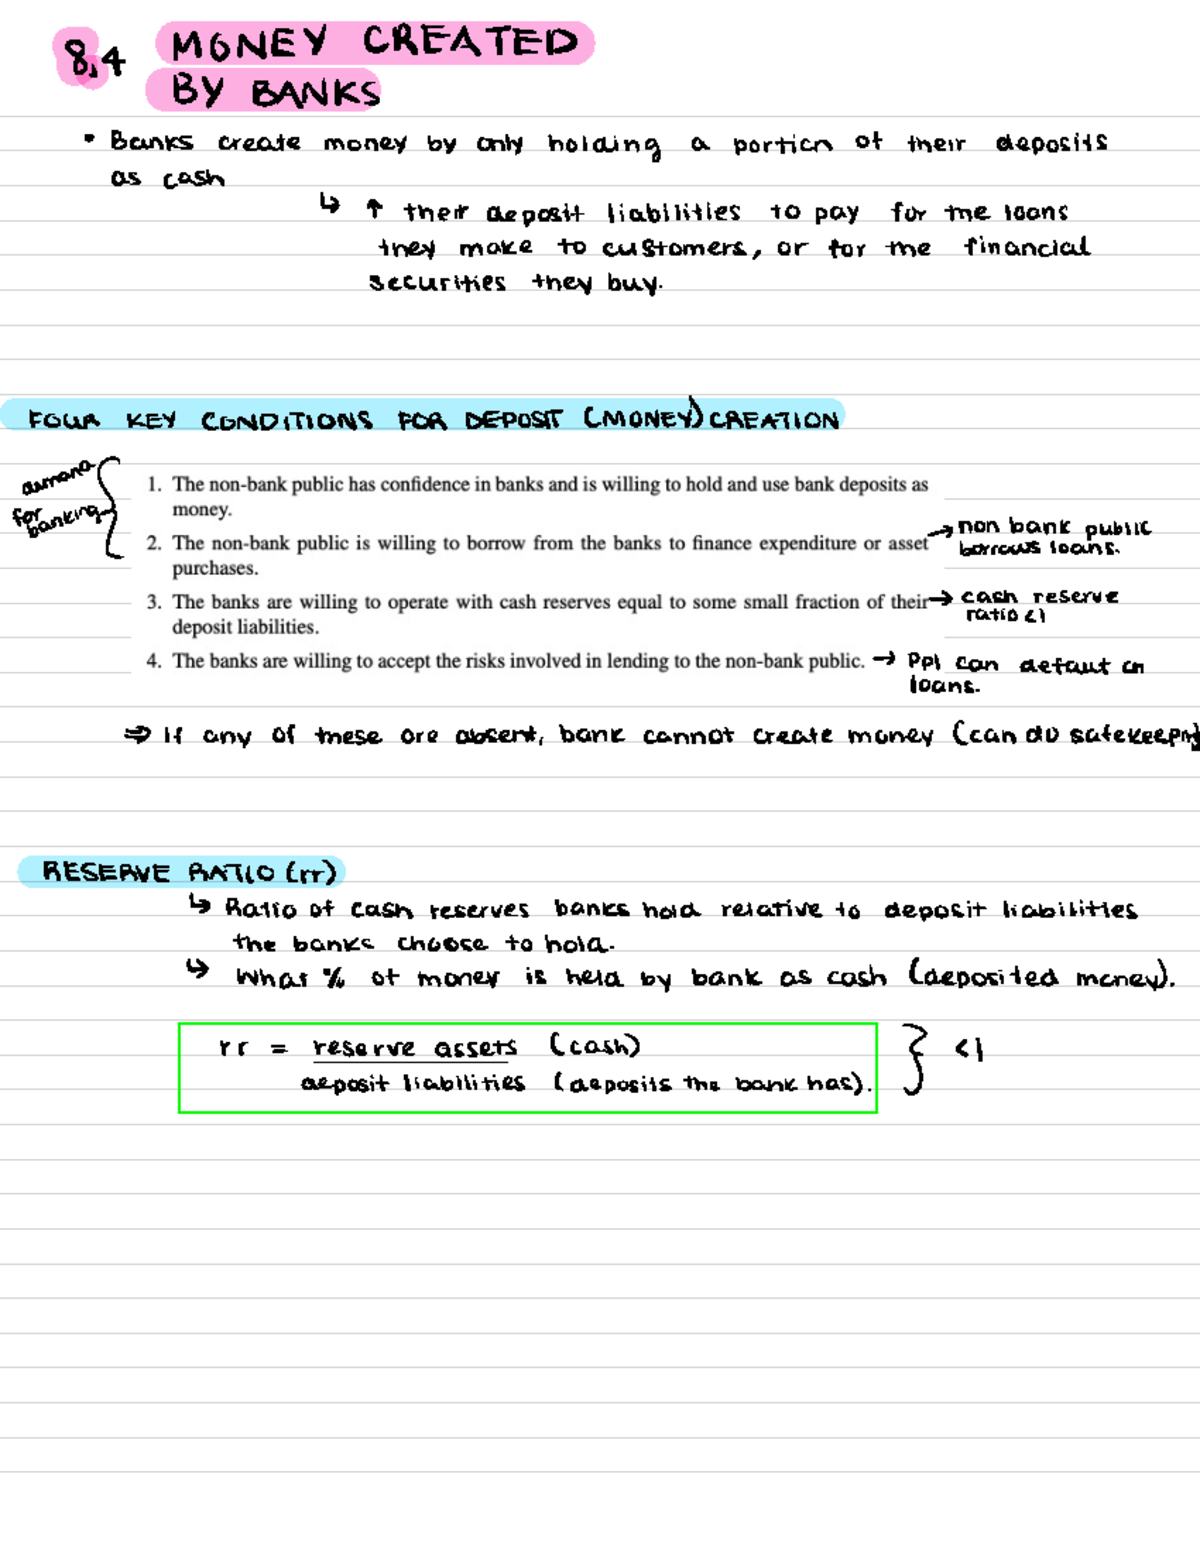 8.4 MONEY CREATED
BY BANKS
• Banks create money by only holding a portion of their deposits
as cash
↳ ↑ their deposit liabilities to pay for the loans
they make to customers, or for the financial
securities they buy.
FOUR KEY CONDITIONS FOR DEPOSIT (MONEY) CREATION
demand
for
banking
1. The non-bank public has confidence in banks and is willing to hold and use bank deposits as
money.
2. The non-bank public is willing to borrow from the banks to finance expenditure or asset
purchases.
→ non bank public
borrows loans.
3. The banks are willing to operate with cash reserves equal to some small fraction of their
deposit liabilities.
→ cash reserve
ratio <1
4. The banks are willing to accept the risks involved in lending to the non-bank public. → Ppl can defaut on
loans.
⇒ If any of these are absent, bank cannot create money (can do safekeeping
RESERVE RATIO (rr)
↳ Ratio of cash reserves banks hold relative to deposit liabilities
the banks choose to hold.
↳ What % of money is held by bank as cash (deposited money).
rr = reserve assets (cash)
deposit liabilities (deposits the bank has).
} <1